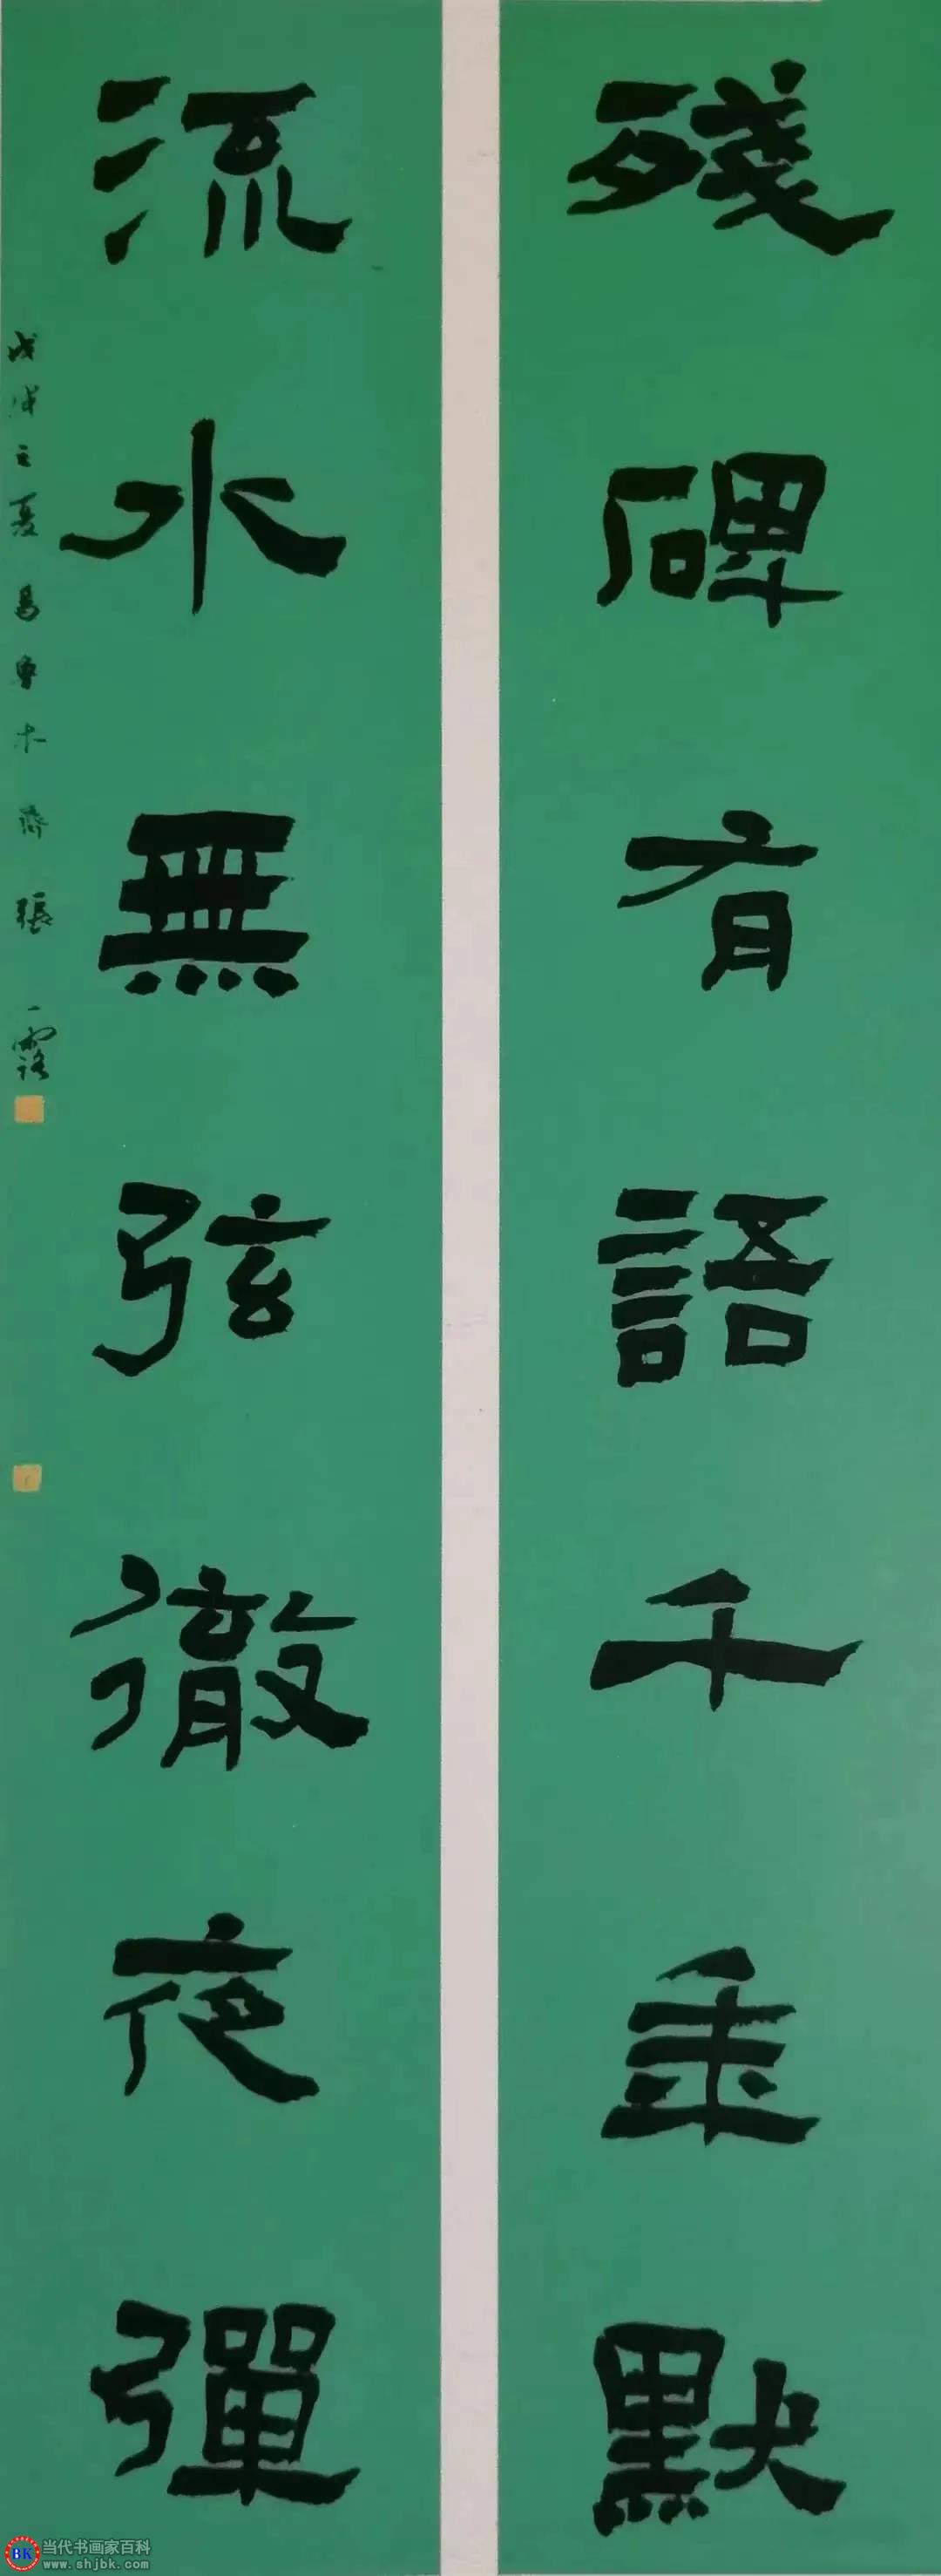 殘碑有語千年默
流水無弦徹夜彈
戊戌之夏烏魯木齊張露
BK
当代书画家百科
www.shjbk.com